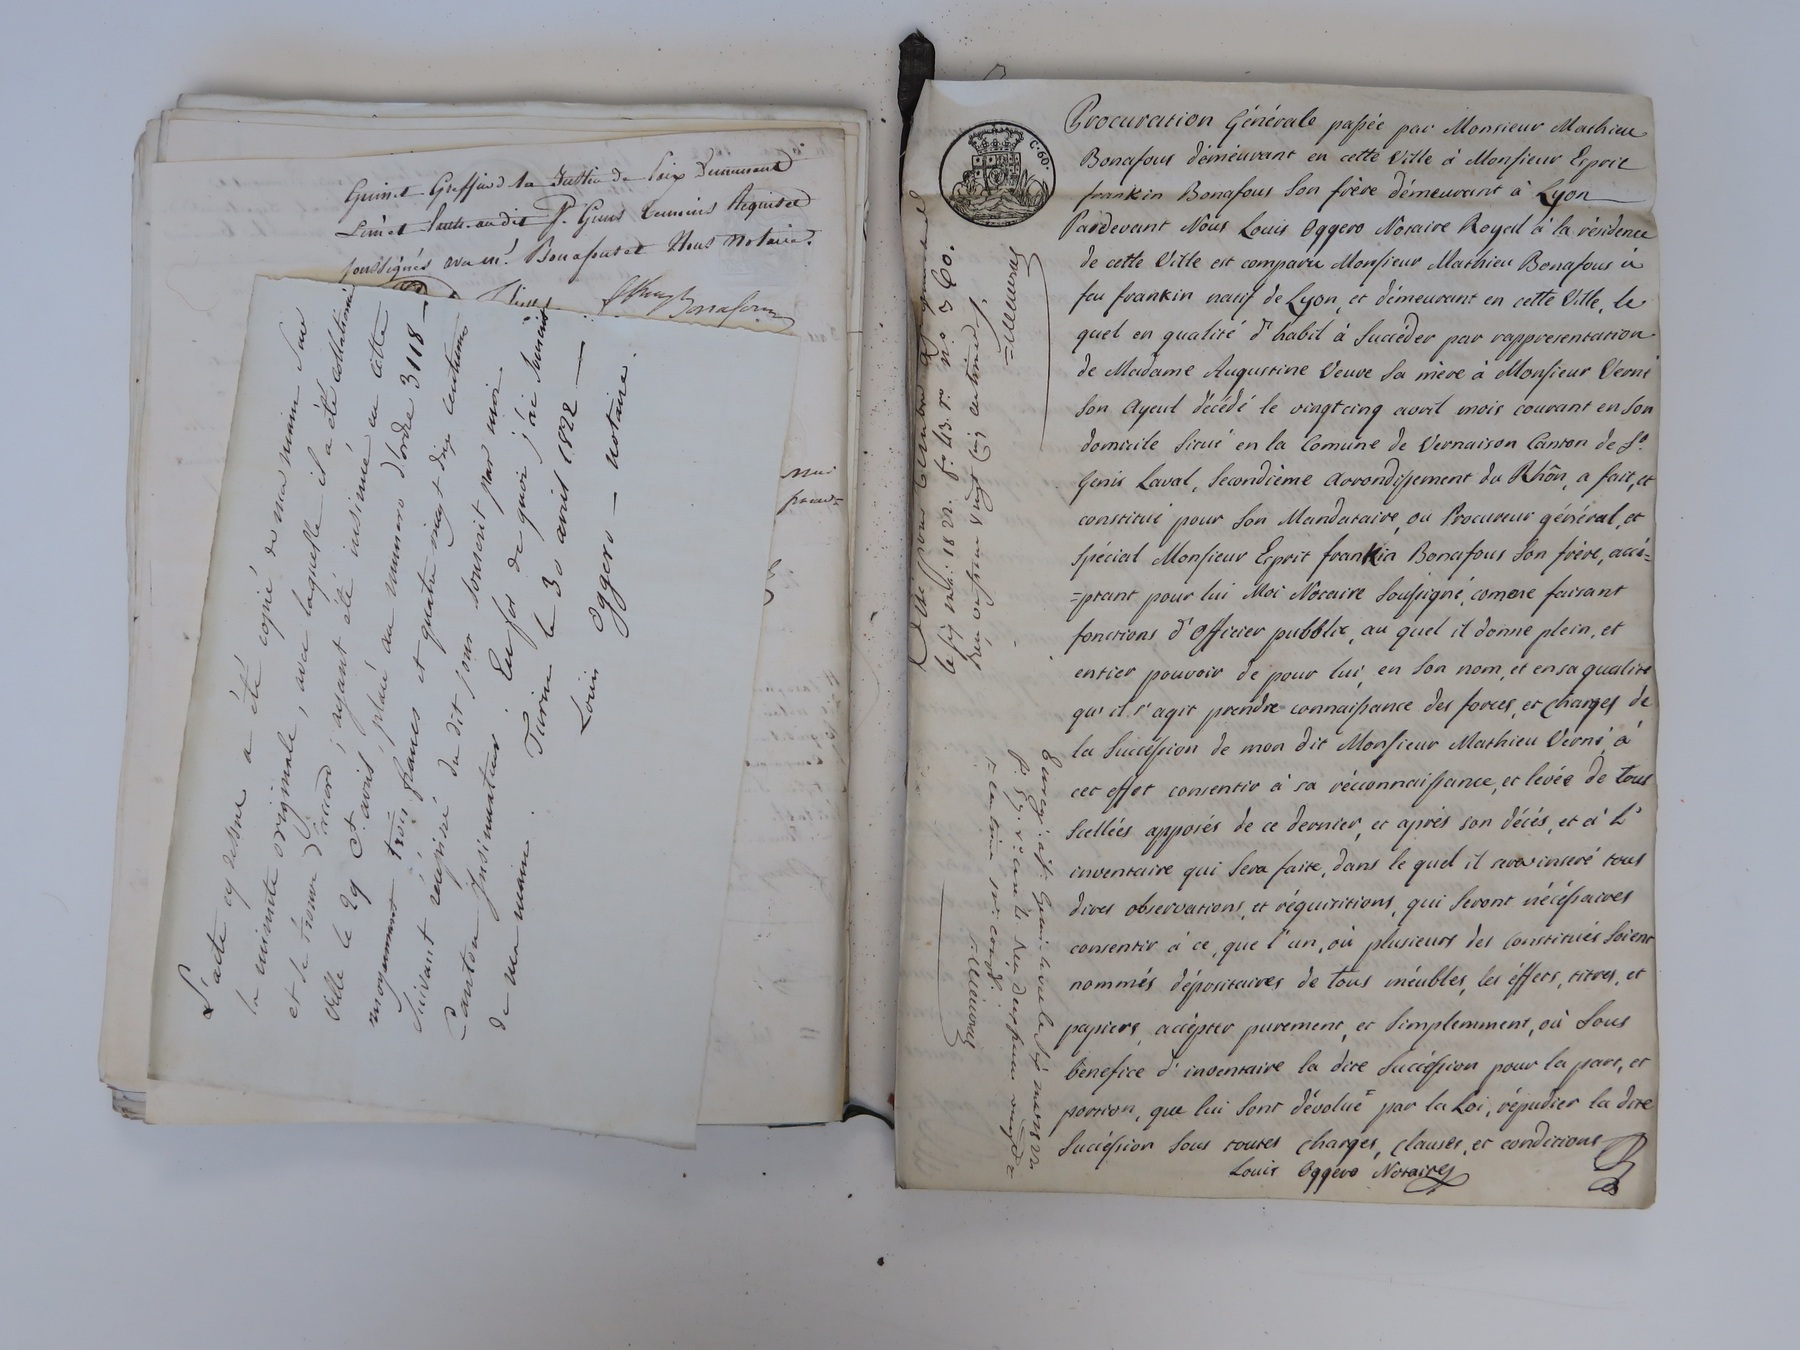 Guinet Greffier de la Justice de Paix Demeurant
Genis Laval audit St Genis Temoins Requis et
soussignés avec mr. Bonafous et Nous notaire.
Bonafous
L'acte cy dessus a été copié de ma main sur
la minute originale, avec laquelle il a été collationné
et se trouve d'accord, ayant été insinué en cette
Ville le 29 Ct. avril, placé au numero d'ordre 3118 —
moyennant trois francs et quatre vingt dix centimes
suivant récépissé du dit jour souscrit par moi
Canton Insinuateur. En foi de quoi j'ai
de ma main. Turin le 30 avril 1822 —
Louis Oggero — notaire.
C. 60.
Procuration Générale passée par Monsieur Mathieu
Bonafous démeurant en cette Ville à Monsieur Esprit
frankin Bonafous Son frère démeurant à Lyon
Pardevant Nous Louis Oggero Notaire Royal à la résidence
de cette Ville est comparu Monsieur Mathieu Bonafous à
feu frankin natif de Lyon, et démeurant en cette Ville, le
quel en qualité d'habil à Succéder par rappresentation
de Madame Augustine Veuve Sa mère à Monsieur Verné
Son Ayeul décédé le vingtcinq avril mois courant en Son
domicile Situé en la Comune de Vernaison Canton de St.
Genis Laval, Secondième Arrondissement du Rhôn, a fait, et
constitué pour Son Mandataire, ou Procureur général, et
Spécial Monsieur Esprit frankin Bonafous Son frère, accé=
=ptant pour lui Moi Notaire Soussigné, comme faisant
fonctions d'Officier pubblic, au quel il donne plein, et
entier pouvoir de pour lui, en Son nom, et en sa qualité
qu'il s'agit prendre connaissance des forces, et charges de
la Succession de mon dit Monsieur Mathieu Verné, à
cet effet consentir à sa réconnaissance, et levée de tous
Scellées apposés de ce dernier, et après son décés, et à l'
inventaire qui Sera faite, dans le quel il sera inséré tous
dires observations, et réquisitions, qui Seront nécéssaires
consentir à ce, que l'un, où plusieurs des Constitués Soient
nommés dépositaires de tous méubles, les éffets, titres, et
papiers, accépter purement, et Simplemment, où Sous
bénefice d'inventaire la dite Succéssion pour la part, et
portion, que lui Sont dévolué par la Loi, répudier la dite
Succéssion Sous toutes charges, clauses, et conditions
Louis Oggero Notaire